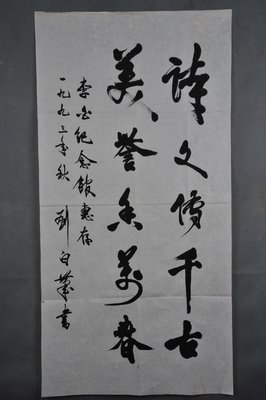 诗文传千古
美誉香万春
李白纪念馆惠存
一九九三年秋
刘白羽书